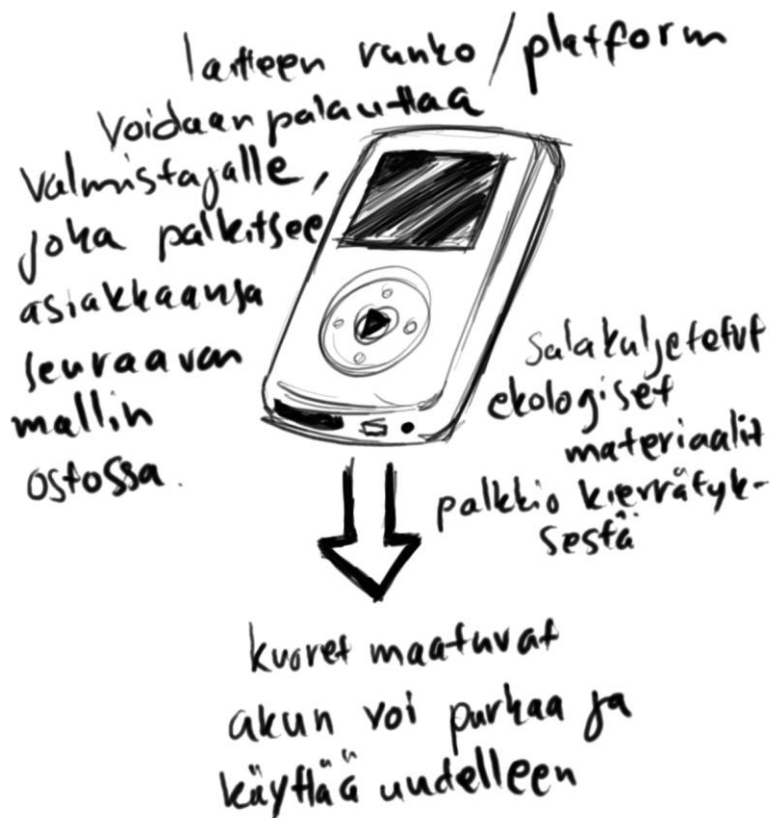 laitteen runko / platform
voidaan palauttaa
valmistajalle,
joka palkitsee
asiakkaansa
seuraavan
mallin
ostossa.
salakuljetetut
ekologiset
materiaalit
palkkio kierrätyk-
sestä
kuoret maatuvat
akun voi purkaa ja
käyttää uudelleen